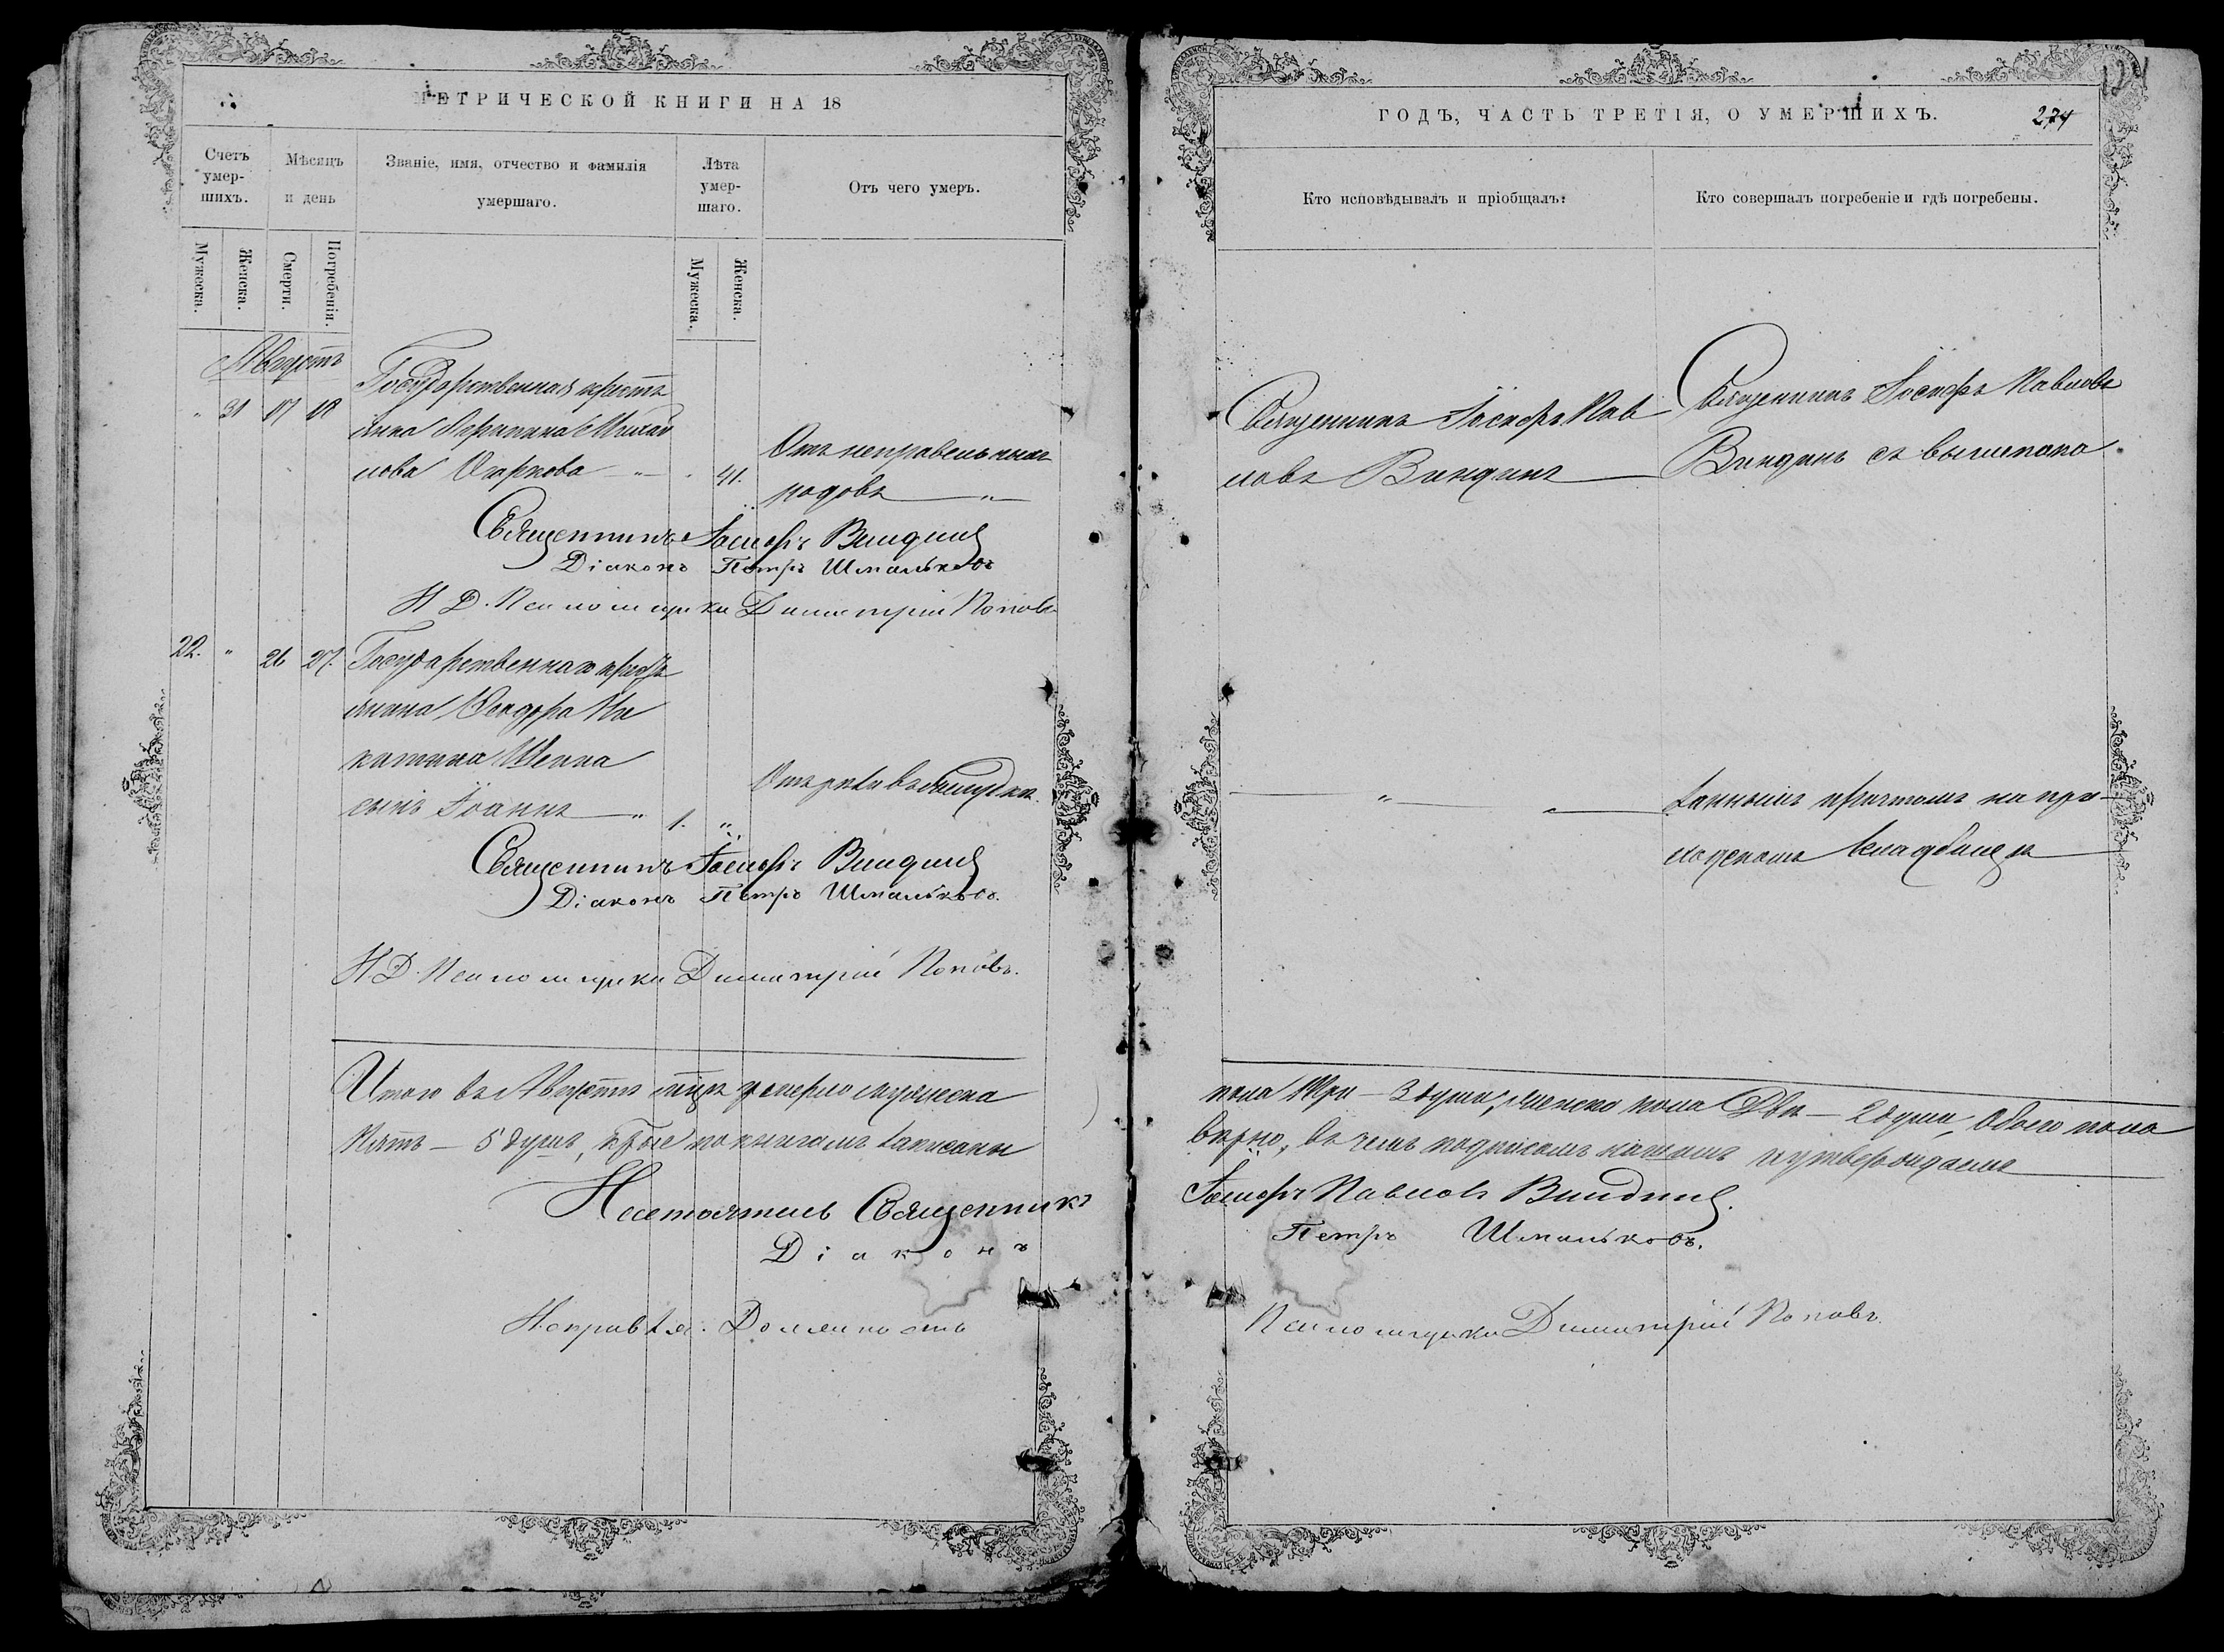 МЕТРИЧЕСКОЙ КНИГИ НА 18
Счетъ умер- шихъ.
Мѣсяцъ и день
Званіе, имя, отчество и фамилія
умершаго.
Лѣта умер- шаго.
Отъ чего умеръ.
Мужеска.
Женска.
Смерти.
Погребенія.
Мужеска.
Женска.
Августъ
" 31 17 18
Государственная кресть
янка Михай
лова
41.
Отъ неправельныхъ
родовъ
Священникъ Іосифъ Виндинъ
Діаконъ Петръ Шмальковъ
И. Д. Псаломщика Димитрій Поповъ
22. " 26 27.
Государственнаго кресть
янина Ѳеодора Ни
китина
сынъ Іоаннъ 1. "
Отъ
Священникъ Іосифъ Виндинъ
Діаконъ Петръ Шмальковъ.
И. Д. Псаломщика Димитрій Поповъ.
Итого въ Августѣ мцѣ умерло мужеска
Пять — 5 душъ, кои по книгамъ записаны
Настоятель Священникъ
Діаконъ
Исправля. Должность
ГОДЪ, ЧАСТЬ ТРЕТІЯ, О УМЕРШИХЪ.
274
124
Кто исповѣдывалъ и пріобщалъ.
Кто совершалъ погребеніе и гдѣ погребены.
Священникъ Іосифъ Пав
ловъ Виндинъ
Священникъ Іосифъ Павловъ
Виндинъ съ вышепока
" "
заннымъ причтомъ на при-
ходскомъ кладбищѣ
пола три — 3 души, женска пола Двѣ — 2 души, Обоего пола
вѣрно, въ чемъ подписомъ нашимъ и утверждаемъ
Іосифъ Павловъ Виндинъ.
Петръ Шмальковъ.
Псаломщика Димитрій Поповъ.